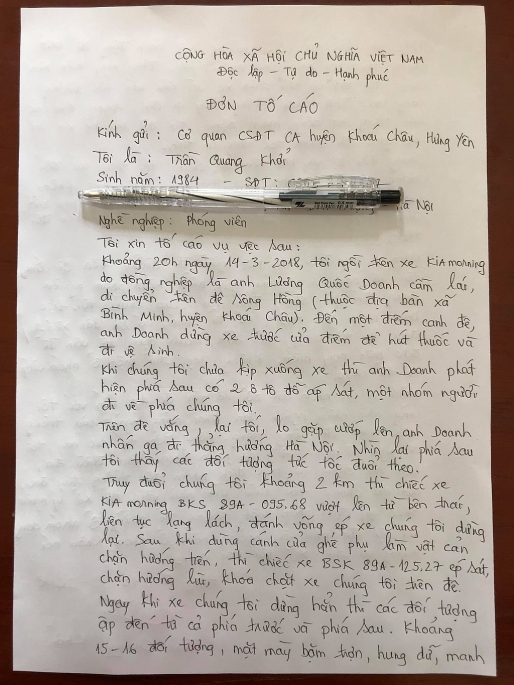 CỘNG HÒA XÃ HỘI CHỦ NGHĨA VIỆT NAM
Độc lập - Tự do - Hạnh phúc
ĐƠN TỐ CÁO
Kính gửi : Cơ quan CSĐT CA huyện Khoái Châu, Hưng Yên
Tôi là : Trần Quang Khởi
Sinh năm: 1984 - SĐT:
Hà Nội
Nghề nghiệp : Phóng viên
Tôi xin tố cáo vụ việc sau :
Khoảng 20h ngày 14-3-2018, tôi ngồi trên xe KIA morning
do đồng nghiệp là anh Lương Quốc Doanh cầm lái,
di chuyển trên đê sông Hồng (thuộc địa bàn xã
Bình Minh, huyện Khoái Châu). Đến một điếm canh đê,
anh Doanh dừng xe trước cửa điếm để hút thuốc và
đi vệ sinh.
Khi chúng tôi chưa kịp xuống xe thì anh Doanh phát
hiện phía sau có 2 ô tô đỗ áp sát, một nhóm người
đi về phía chúng tôi.
Trên đê vắng, lại tối, lo gặp cướp lên, anh Doanh
nhấn ga đi thẳng hướng Hà Nội. Nhìn lại phía sau
tôi thấy các đối tượng tức tốc đuổi theo.
Truy đuổi chúng tôi khoảng 2 km thì chiếc xe
KIA morning BKS 89A - 095.68 vượt lên từ bên trái,
liên tục lạng lách, đánh võng ép xe chúng tôi dừng
lại. Sau khi dùng cánh cửa ghế phụ làm vật cản
chặn hướng trên, thì chiếc xe BSK 89A - 125.27 ép sát,
chặn hướng lùi, khoá chặt xe chúng tôi trên đê.
Ngay khi xe chúng tôi dừng hẳn thì các đối tượng
ập đến từ cả phía trước và phía sau. Khoảng
15-16 đối tượng, mặt mày bặm trợn, hung dữ, manh